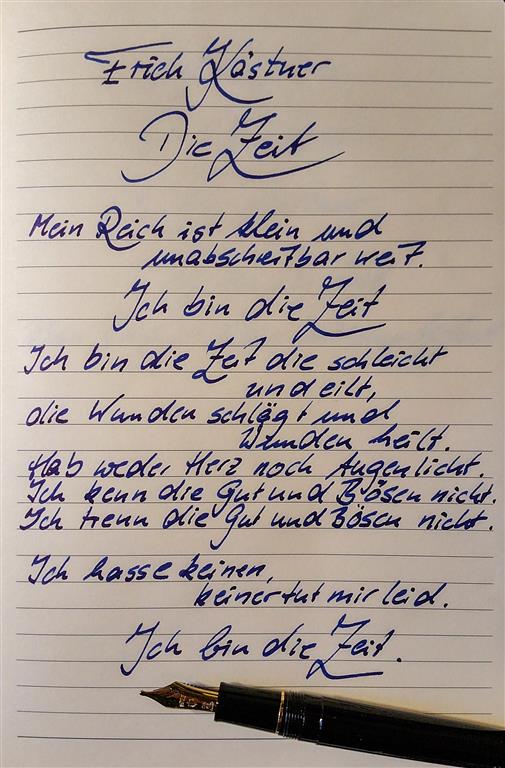 Erich Kästner
Die Zeit
Mein Reich ist klein und
unabschreitbar weit.
Ich bin die Zeit
Ich bin die Zeit die schleicht
und eilt,
die Wunden schlägt und
Wunden heilt.
Hab weder Herz noch Augenlicht.
Ich kenn die Gut und Bösen nicht.
Ich trenn die Gut und Bösen nicht.
Ich hasse keinen,
keiner tut mir leid.
Ich bin die Zeit.